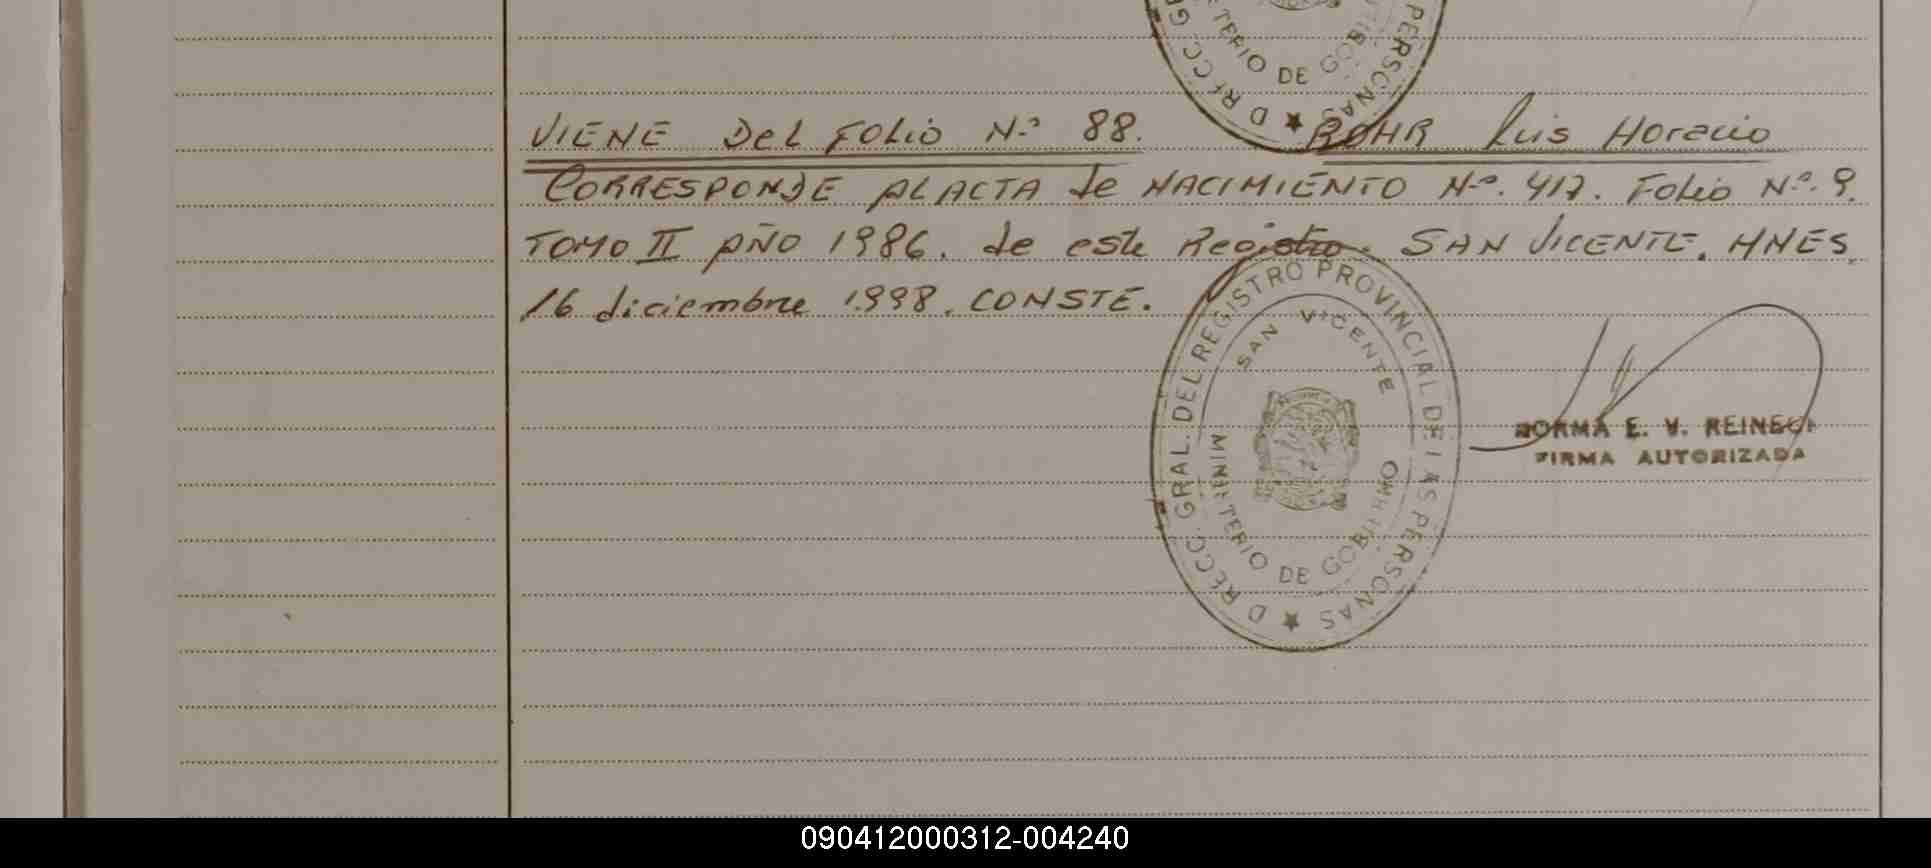 TERIO DE GOBI
D RECC. G PERSONAS
VIENE DEL FOLIO N.º 88. ROHR Luis Horacio
CORRESPONDE AL ACTA de NACIMIENTO N.º. 417. FOLIO N.º. 9.
TOMO II AÑO 1986. de este Registro. SAN VICENTE. MNES.
16 diciembre 1.998. CONSTE.
D RECC. GRAL. DEL REGISTRO PROVINCIAL DE LAS PERSONAS
SAN VICENTE
MINISTERIO DE GOBIERNO
NORMA E. V.
FIRMA AUTORIZADA
090412000312-004240